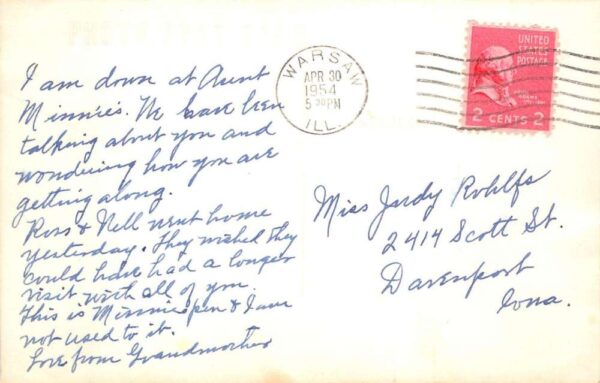 I am down at Aunt
Minnie's. We have been
talking about you and
wondering how you are
getting along.
Ross & Nell went home
yesterday. They wished they
could have had a longer
visit with all of you.
This is Minnie's pen & I am
not used to it.
Love from Grandmother
WARSAW
APR 30
1954
5 30 PM
ILL.
UNITED
STATES
POSTAGE
2 CENTS 2
Miss Judy Rohlfs
2414 Scott St.
Davenport
Iowa.